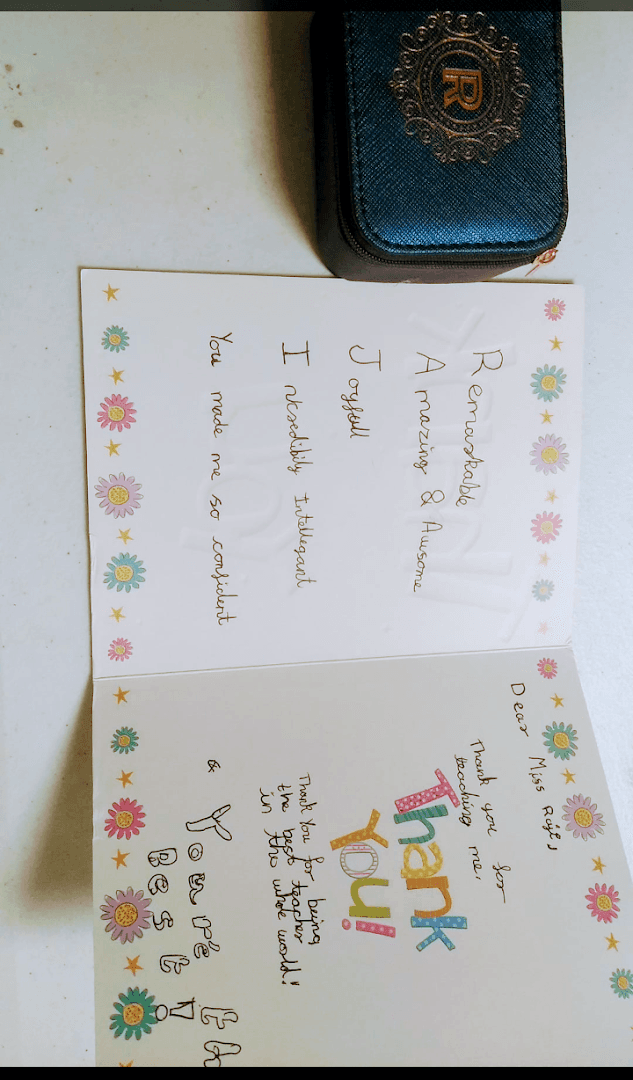 R
Remarkable
Amazing & Awsome
Joyfull
Inkredibily Intellegant
You made me so confident
Dear Miss Raji,
Thank you for
teaching me.
Thank
You!
Thank You for being
the best teacher
in the whole world!
&
You're
Best